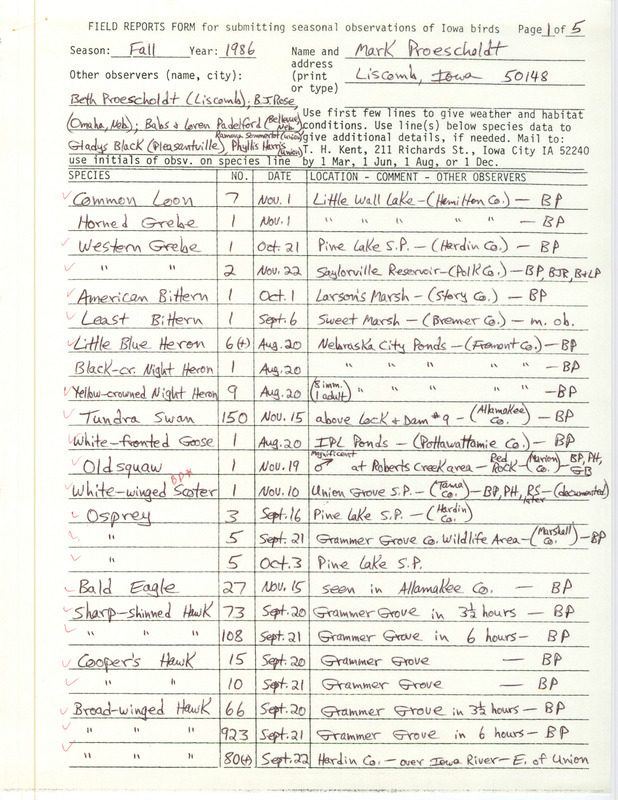 FIELD REPORTS FORM for submitting seasonal observations of Iowa birds Page 1 of 5
Season: Fall Year: 1986 Name and address (print or type) Mark Proescholdt
Liscomb, Iowa 50148
Other observers (name, city):
Beth Proescholdt (Liscomb); B.J. Rose,
(Omaha, Neb.); Babs & Loren Padelford (Bellevue Neb.
Ramona Sommerlot (Union)
Gladys Black (Pleasantville) Phyllis Harris (Union)
use initials of obsv. on species line
Use first few lines to give weather and habitat
conditions. Use line(s) below species data to
give additional details, if needed. Mail to:
T. H. Kent, 211 Richards St., Iowa City IA 52240
by 1 Mar, 1 Jun, 1 Aug, or 1 Dec.
SPECIES NO. DATE LOCATION - COMMENT - OTHER OBSERVERS
Common Loon 7 Nov. 1 Little Wall Lake - (Hamilton Co.) - BP
Horned Grebe 1 Nov. 1 " " " " " - BP
Western Grebe 1 Oct. 21 Pine Lake S.P. - (Hardin Co.) - BP
" " 2 Nov. 22 Saylorville Reservoir - (Polk Co.) - BP, BJR, B+LP
American Bittern 1 Oct. 1 Larson's Marsh - (Story Co.) - BP
Least Bittern 1 Sept. 6 Sweet Marsh - (Bremer Co.) - m. ob.
Little Blue Heron 6(+) Aug. 20 Nebraska City Ponds - (Fremont Co.) - BP
Black-cr. Night Heron 1 Aug. 20 " " " " - BP
Yellow-crowned Night Heron 9 Aug. 20 (8 imm. 1 adult) " " " - BP
Tundra Swan 150 Nov. 15 above Lock & Dam #9 - (Allamakee Co.) - BP
White-fronted Goose 1 Aug. 20 IPL Ponds - (Pottawattamie Co.) - BP
Oldsquaw 1 Nov. 19 Magnificent ♂ at Roberts Creek area - Red Rock - (Marion Co.) - BP, PH, GB
BP*
White-winged Scoter 1 Nov. 10 Union Grove S.P. - (Tama Co.) - BP, PH, RS later - (documented)
Osprey 3 Sept. 16 Pine Lake S.P. - (Hardin Co.)
" 5 Sept. 21 Grammer Grove Co. Wildlife Area - (Marshall Co.) - BP
" 5 Oct. 3 Pine Lake S.P.
Bald Eagle 27 Nov. 15 seen in Allamakee Co. - BP
Sharp-shinned Hawk 73 Sept. 20 Grammer Grove in 3½ hours - BP
" " " 108 Sept. 21 Grammer Grove in 6 hours - BP
Cooper's Hawk 15 Sept. 20 Grammer Grove - BP
" " 10 Sept. 21 Grammer Grove - BP
Broad-winged Hawk 66 Sept. 20 Grammer Grove in 3½ hours - BP
" " " 923 Sept. 21 Grammer Grove in 6 hours - BP
" " " 80(+) Sept. 22 Hardin Co. - over Iowa River - E. of Union